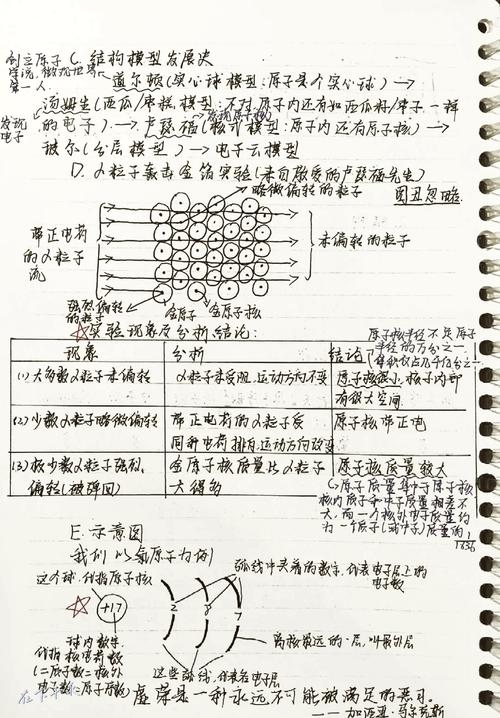 创立原子
学说,微观世界
第一人.
C.结构模型发展史
道尔顿(实心球模型:原子是个实心球)→
汤姆生(西瓜/枣糕模型:不对,原子内还有如西瓜籽/枣子一样
发现
电子
发现原子核
的电子)→卢瑟福(核式模型:原子内还有原子核)→
玻尔(分层模型)→电子云模型
D.α粒子轰击金箔实验(来自敬爱的卢瑟福先生)
略微偏转的粒子
图丑忽略.
带正电荷
的α粒子
流
未偏转的粒子
强烈偏转
的粒子
金原子
金原子核
☆实验现象及分析结论:
原子核半径不足原子
半径的万分之一
体积仅占几千亿分之一
现象
分析
结论
(1)大多数α粒子未偏转
α粒子未受阻,运动方向不变
原子核很小,核子内部
有很大空间
(2)少数α粒子略微偏转
带正电荷的α粒子受
同种电荷排斥,运动方向改变
原子核带正电
(3)极少数α粒子强烈
偏转(被弹回)
金原子核质量比α粒子
大得多
原子核质量较大
原子质量集中于原子核
核内质子和中子质量相差不
大,而一个核外电子质量约
为一个质子(或中子)质量的1/1836
E.示意图
我们以氯原子为例
弧线中夹着的数字,代表电子层上的
电子数
这个球,代指原子核
☆
+17
2
8
7
离核最远的一层,叫最外层
球内数字
代指核电荷数
(=质子数=核外
电子数=原子序数)
这些弧线,代表各电子层
虚荣是一种永远不可能被满足的恶习.
——加西亚·马尔克斯